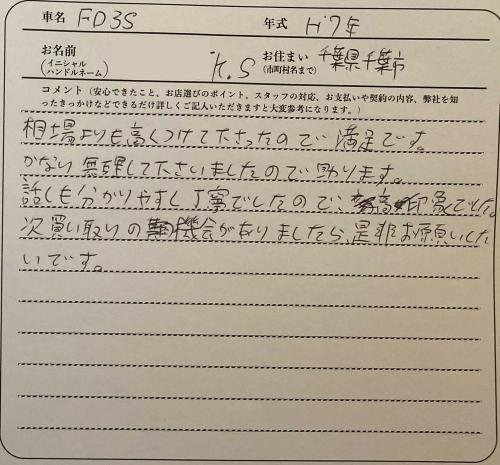 車名 FD3S 年式 H7年
お名前 (イニシャル ハンドルネーム) K.S お住まい (市町村名まで) 千葉県千葉市
コメント（安心できたこと、お店選びのポイント、スタッフの対応、お支払いや契約の内容、弊社を知
ったきっかけなどできるだけ詳しくご記入いただきますと大変参考になります。）
相場よりも高くつけて下さったので満足です。
かなり無理して下さいましたので助ります。
話しも分かりやすく丁寧でしたので、高印象でした。
次買い取りの機会がありましたら、是非お願いした
いです。